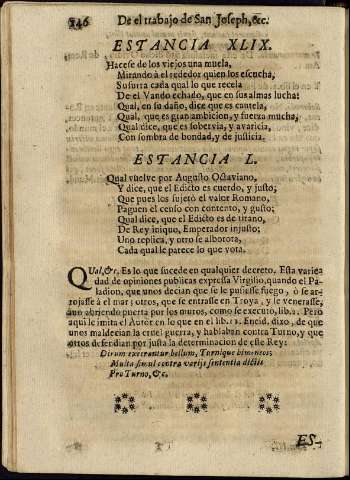 246 De el trabajo de San Joseph, &c.
ESTANCIA XLIX.
Hacese de los viejos una muela,
Mirando à el rededor quien los escucha,
Susurra cada qual lo que recela
De el Vando echado, que en sus almas lucha:
Qual, en su daño, dice que es cautela,
Qual, que es gran ambicion, y fuerza mucha,
Qual dice, que es sobervia, y avaricia,
Con sombra de bondad, y de justicia.
ESTANCIA L.
Qual vuelve por Augusto Octaviano,
Y dice, que el Edicto es cuerdo, y justo;
Que pues los sujetò el valor Romano,
Paguen el censo con contento, y gusto;
Qual dice, que el Edicto es de tirano,
De Rey iniquo, Emperador injusto;
Uno replica, y otro se alborota,
Cada qual le parece lo que vota.
Qual, &c. Es lo que sucede en qualquier decreto. Esta varie
dad de opiniones publicas expressa Virgilio, quando el Pa-
ladion, que unos decian que se le pusiesse fuego, ò se ar-
rojasse à el mar: otros, que se entrasse en Troya, y le venerasse,
aun abriendo puerta por los muros, como se executò, lib.2. Pero
aqui le imita el Autor en lo que en el lib.11. Eneid. dixo, de que
unos maldecian la cruel guerra, y hablaban contra Turno, y que
otros defendian por justa la determinacion de este Rey:
Dirum execrantur bellum, Turnique himeneos;
Multa simul contra varijs sententia dictis
Pro Turno, &c.
ES-